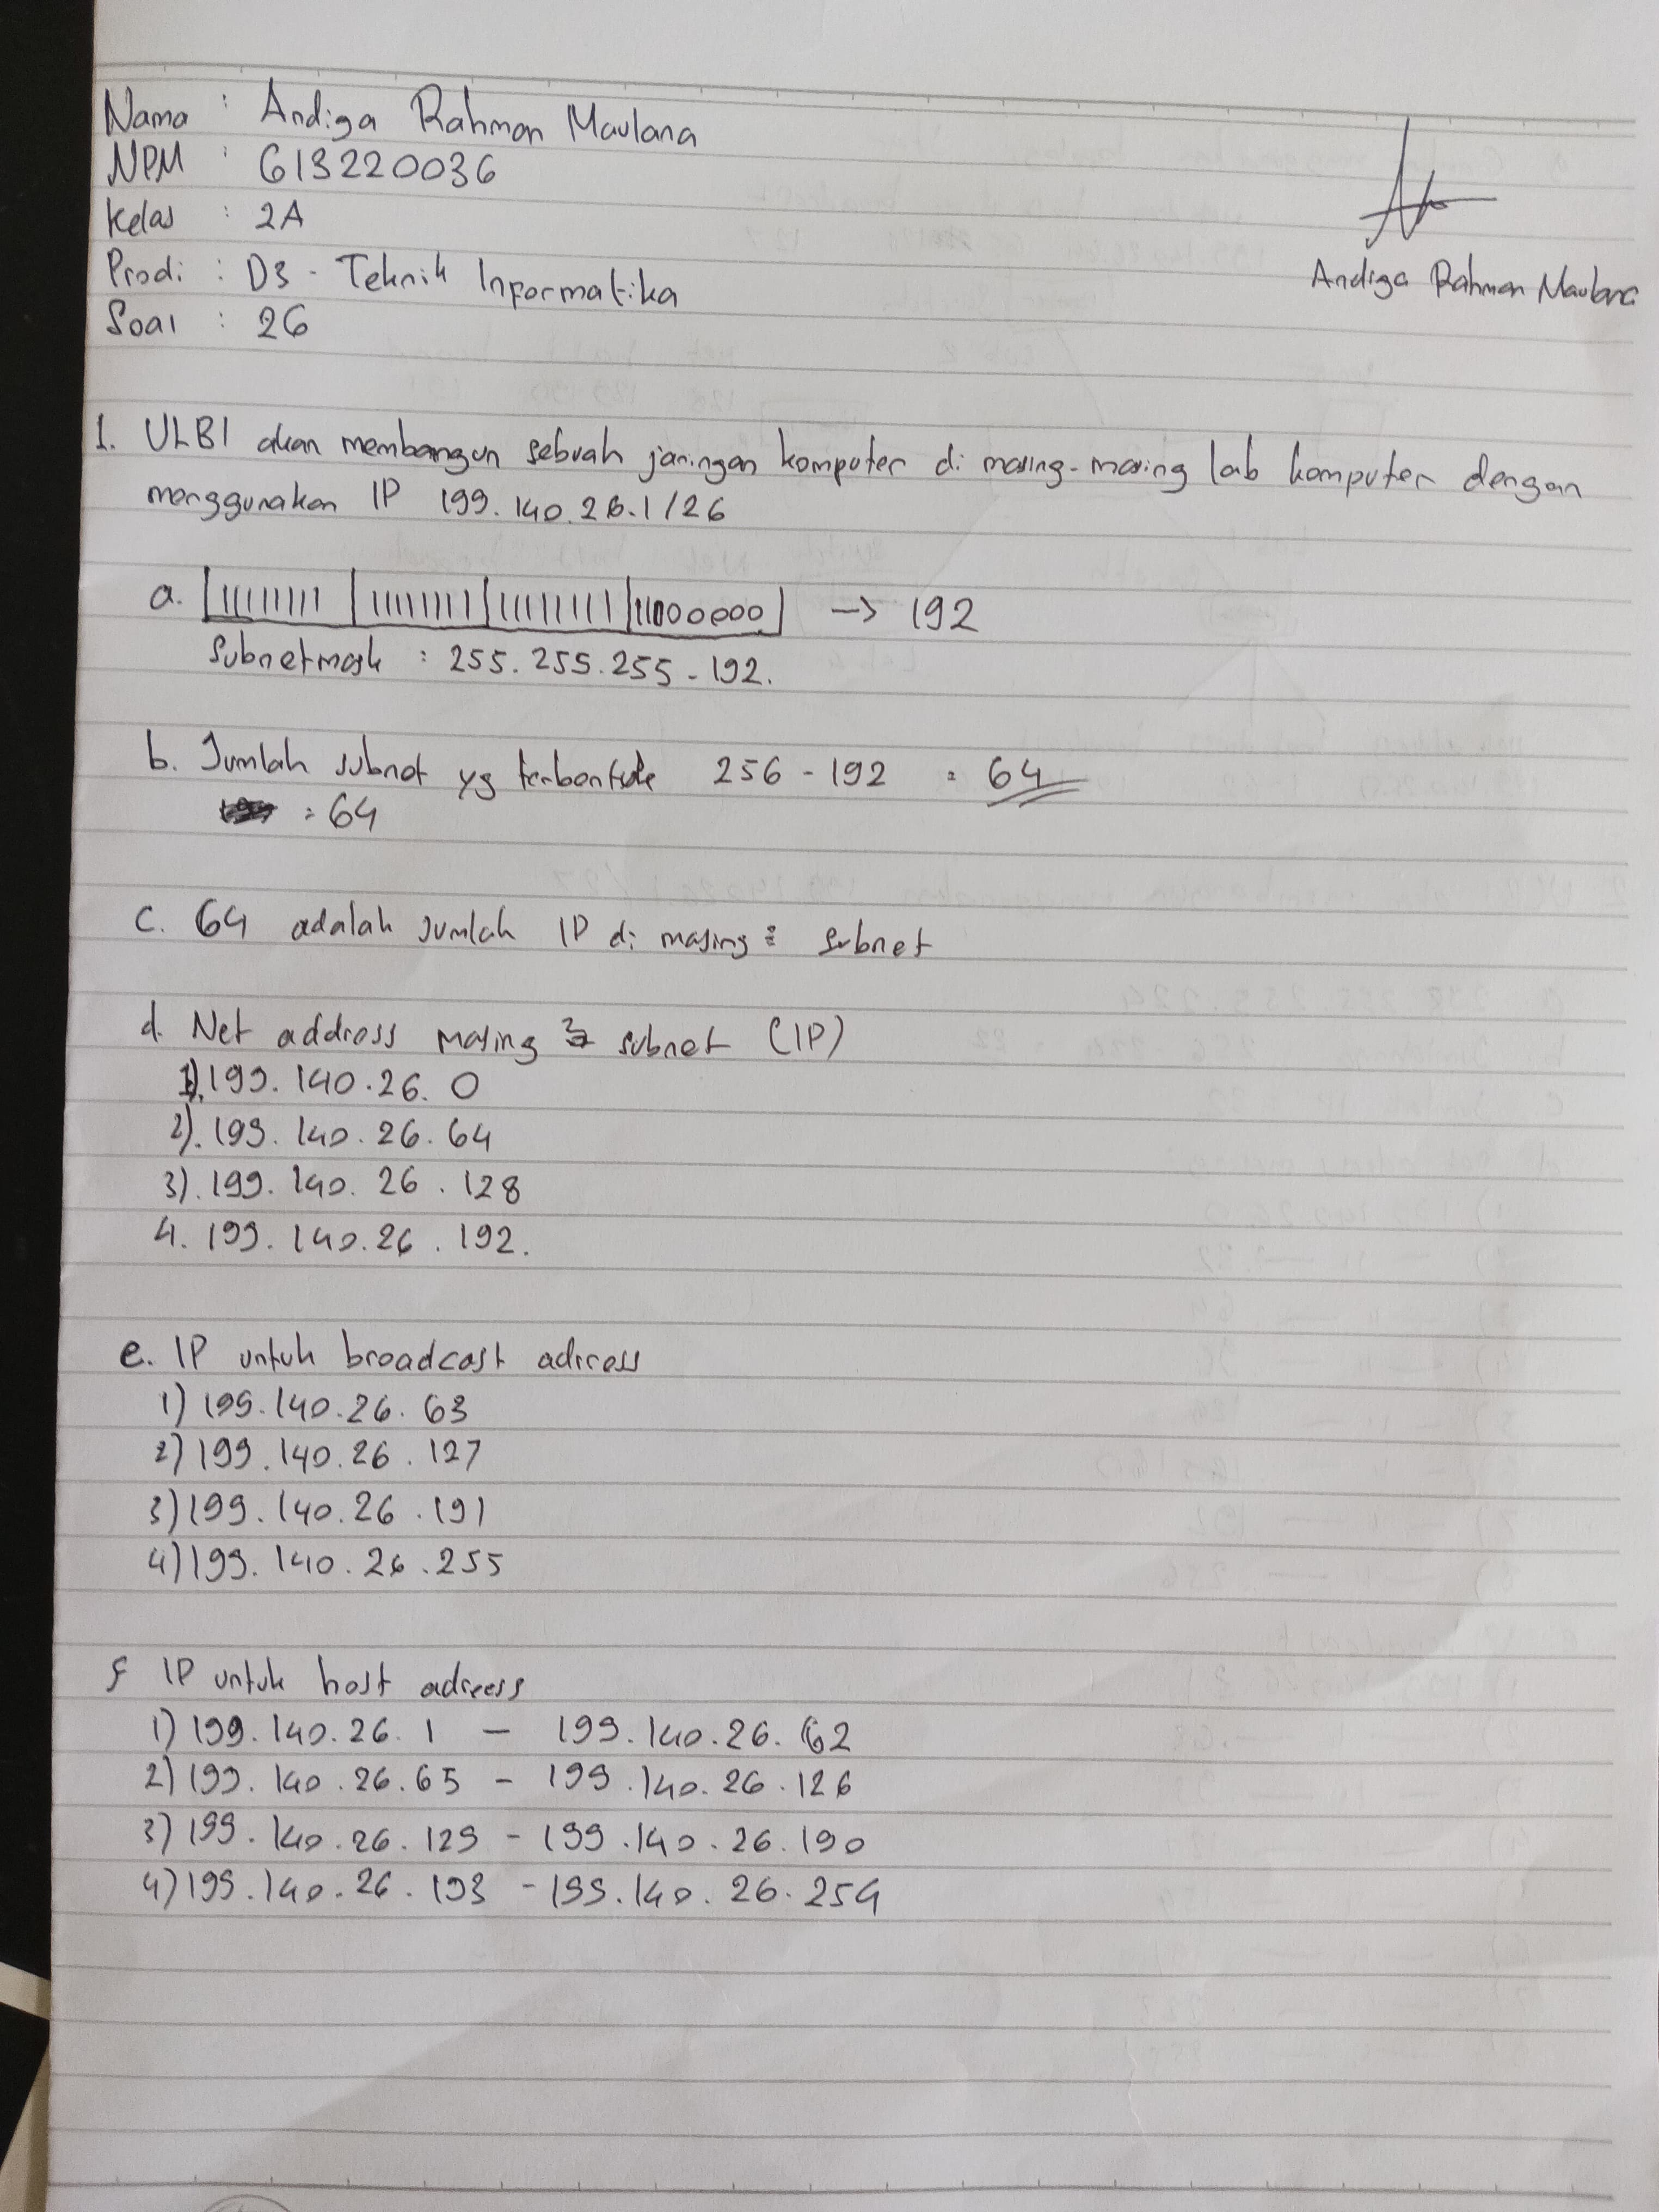 Nama : Andiga Rahman Maulana
NPM : 613220036
Kelas : 2A
Prodi : D3 - Teknik Informatika
Soal : 26
Andiga Rahman Maulana
1. ULBI akan membangun sebuah jaringan komputer di masing-masing lab komputer dengan
menggunakan IP 199.140.26.1/26
a. 11111111 | 11111111 | 11111111 | 11000000 -> 192
Subnetmask : 255.255.255-192.
b. Jumlah subnet yg terbentuk 256 - 192 = 64
: 64
c. 64 adalah Jumlah IP di masing2 subnet
d. Net address masing2 subnet (IP)
1). 199.140.26.0
2). 199.140.26.64
3). 199.140.26.128
4. 199.140.26.192.
e. IP untuk broadcast adress
1) 199.140.26.63
2) 199.140.26.127
3) 199.140.26.191
4) 199.140.26.255
f IP untuk host adreess
1) 199.140.26.1 - 199.140.26.62
2) 199.140.26.65 - 199.140.26.126
3) 199.140.26.129 - 199.140.26.190
4) 199.140.26.193 - 199.140.26.254